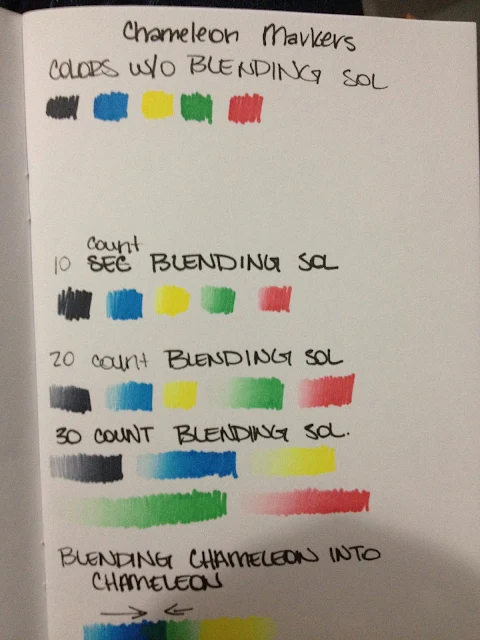 Chameleon Markers
COLORS W/O BLENDING SOL
count
10 SEC BLENDING SOL
20 count BLENDING SOL
30 COUNT BLENDING SOL.
BLENDING CHAMELEON INTO
CHAMELEON